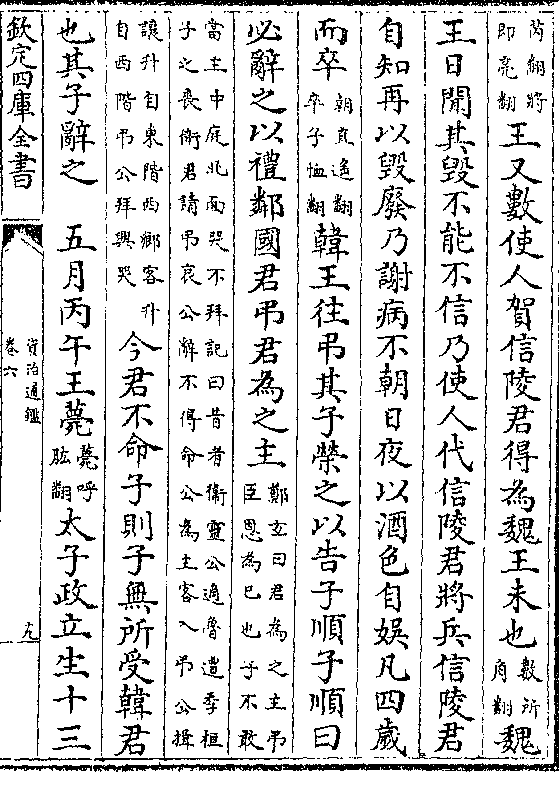 芮翻將即亮翻王又數使人賀信陵君得為魏王未也數所角翻魏
王日聞其毀不能不信乃使人代信陵君將兵信陵君
自知再以毀廢乃謝病不朝日夜以酒色自娛凡四歲
而卒朝直遙翻卒子恤翻韓王往弔其子榮之以告子順子順曰
必辭之以禮鄰國君弔君為之主鄭玄曰君為之主弔臣恩為己也子不敢
當主中庭北面哭不拜記曰昔者衛靈公適魯遭季桓子之喪衛君請弔哀公辭不得命公為主客入弔公揖
讓升自東階西鄉客升自西階弔公拜興哭今君不命子則子無所受韓君
也其子辭之　五月丙午王薨薨呼肱翻太子政立生十三
欽定四庫全書
資治通鑑
卷六
十九